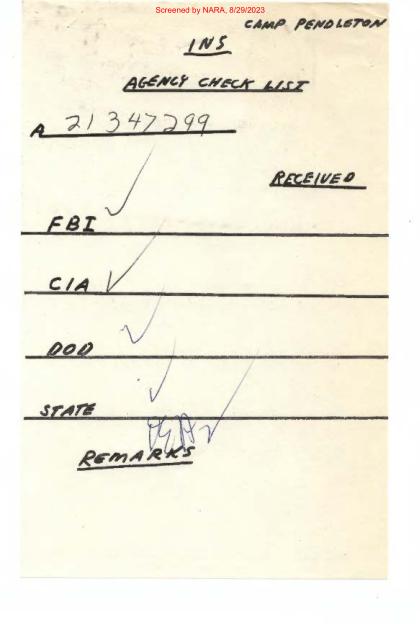 Screened by NARA, 8/29/2023
CAMP PENDLETON
INS
AGENCY CHECK LIST
A 21 347 299
RECEIVED
FBI ✓
CIA ✓
DOD ✓
STATE ✓
REMARKS